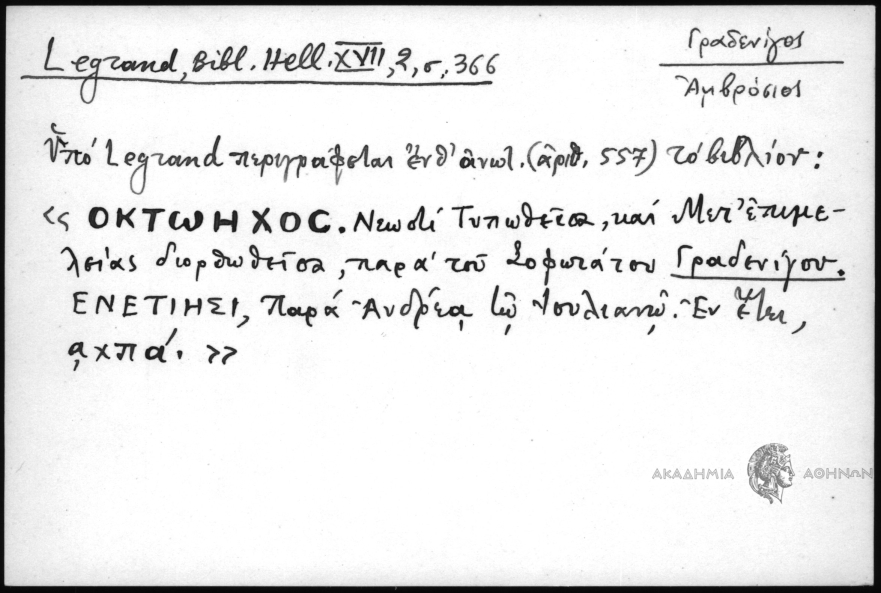 Legrand, Bibl. Hell. XVII, 2, σ. 366
Γραδενίγος
Ἀμβρόσιος
Ὑπό Legrand περιγράφεται ἐνθ' ἀνωτ. (ἀριθ. 557) τό βιβλίον:
« ΟΚΤΩΗΧΟC. Νεωστί Τυπωθεῖσα, καί Μετ' ἐπιμε-
λείας διορθωθεῖσα, παρά τοῦ Σοφωτάτου Γραδενίγου.
ΕΝΕΤΙΗΣΙ, Παρά Ἀνδρέᾳ τῷ Ἰουλιανῷ. Ἐν Ἔτει,
͵αχπά. »
ΑΚΑΔΗΜΙΑ ΑΘΗΝΩΝ